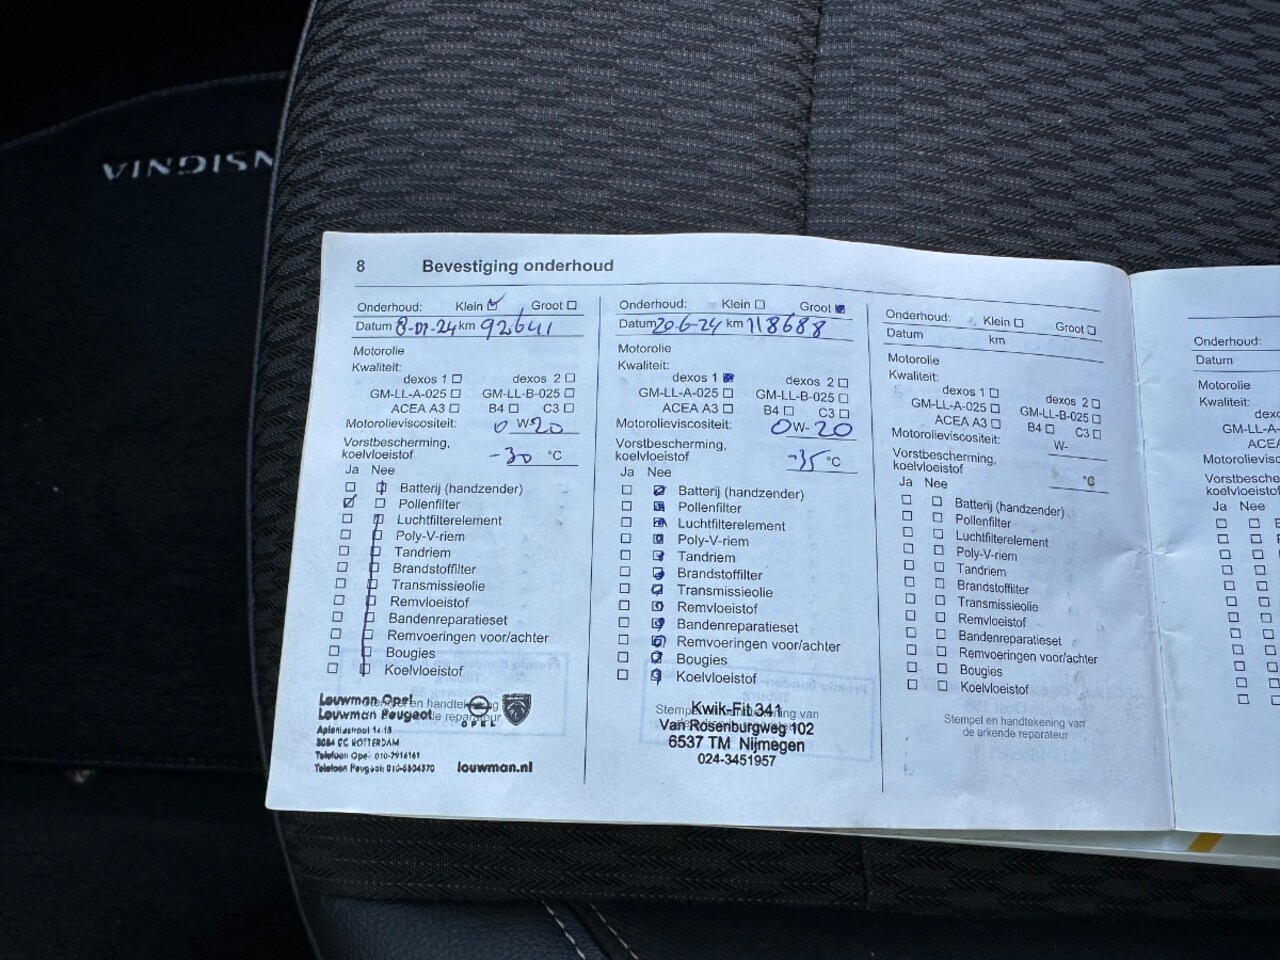 INSIGNIA
8 Bevestiging onderhoud
Onderhoud: Klein ☑ Groot ☐
Datum 8-01-24 km 92641
Motorolie
Kwaliteit:
dexos 1 ☐ dexos 2 ☐
GM-LL-A-025 ☐ GM-LL-B-025 ☐
ACEA A3 ☐ B4 ☐ C3 ☐
Motorolieviscositeit: 0 W- 20
Vorstbescherming,
koelvloeistof -30 °C
Ja Nee
Batterij (handzender)
Pollenfilter
Luchtfilterelement
Poly-V-riem
Tandriem
Brandstoffilter
Transmissieolie
Remvloeistof
Bandenreparatieset
Remvoeringen voor/achter
Bougies
Koelvloeistof
Louwman Opel
Louwman Peugeot
OPEL
Telefoon Opel 010-2916161
Telefoon Peugeot 010-5504370 louwman.nl
Onderhoud: Klein ☐ Groot ☑
Datum 20-6-24 km 118688
Motorolie
Kwaliteit:
dexos 1 ☑ dexos 2 ☐
GM-LL-A-025 ☐ GM-LL-B-025 ☐
ACEA A3 ☐ B4 ☐ C3 ☐
Motorolieviscositeit: 0W-20
Vorstbescherming,
koelvloeistof -35 °C
Ja Nee
Batterij (handzender)
Pollenfilter
Luchtfilterelement
Poly-V-riem
Tandriem
Brandstoffilter
Transmissieolie
Remvloeistof
Bandenreparatieset
Remvoeringen voor/achter
Bougies
Koelvloeistof
Kwik-Fit 341
Van Rosenburgweg 102
6537 TM Nijmegen
024-3451957
Onderhoud: Klein ☐ Groot ☐
Datum km
Motorolie
Kwaliteit:
dexos 1 ☐ dexos 2 ☐
GM-LL-A-025 ☐ GM-LL-B-025 ☐
ACEA A3 ☐ B4 ☐ C3 ☐
Motorolieviscositeit: W-
Vorstbescherming,
koelvloeistof °C
Ja Nee
Batterij (handzender)
Pollenfilter
Luchtfilterelement
Poly-V-riem
Tandriem
Brandstoffilter
Transmissieolie
Remvloeistof
Bandenreparatieset
Remvoeringen voor/achter
Bougies
Koelvloeistof
Stempel en handtekening van
de erkende reparateur
Onderhoud:
Datum
Motorolie
Kwaliteit:
Ja Nee